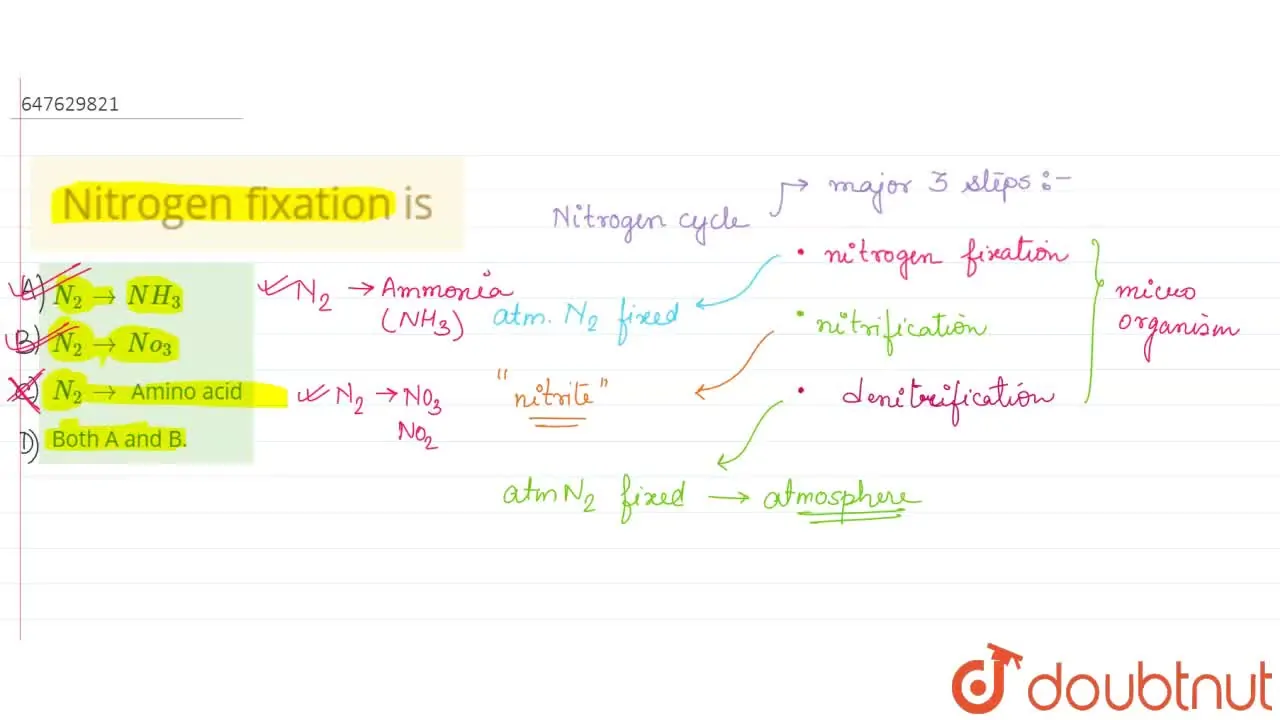 647629821
Nitrogen fixation is
A) N₂ → NH₃
B) N₂ → No₃
C) N₂ → Amino acid
D) Both A and B.
N₂ → Ammonia
(NH₃)
N₂ → NO₃
NO₂
Nitrogen cycle → major 3 steps :-
• nitrogen fixation
• nitrification
• denitrification
micro
organism
atm. N₂ fixed
"nitrite"
atm N₂ fixed → atmosphere
doubtnut